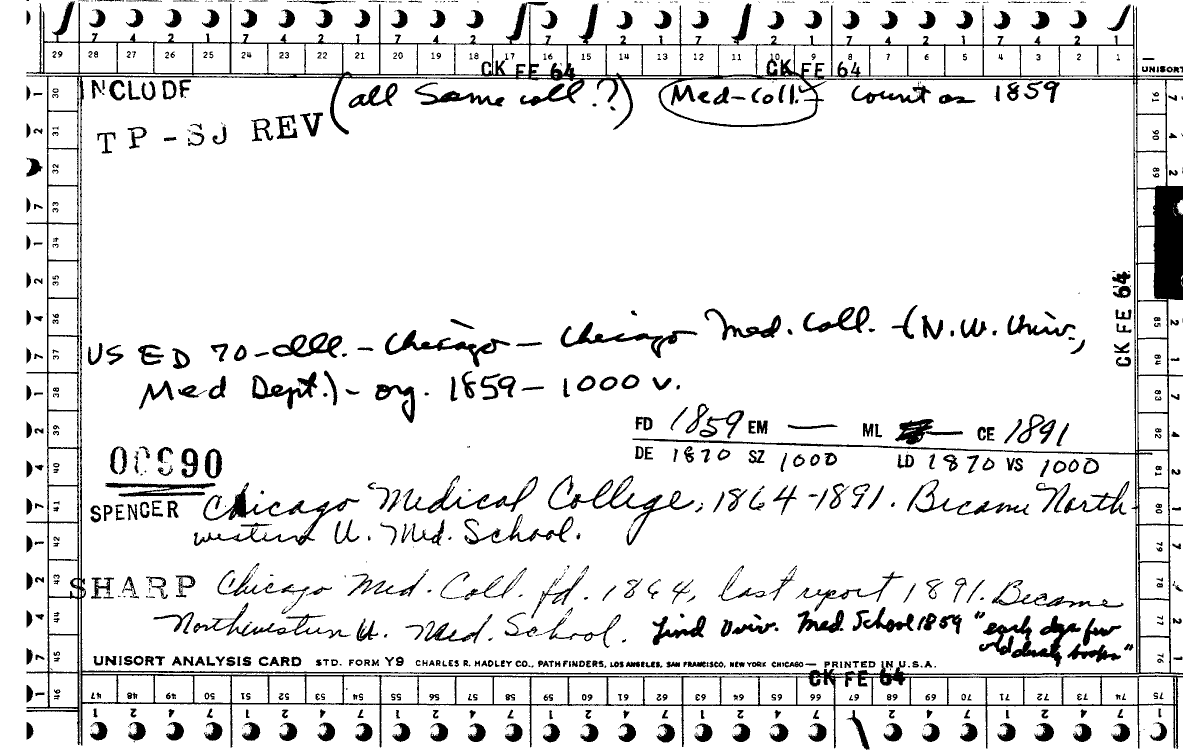 7 4 2 1 7 4 2 1 7 4 2 1 7 4 2 1 7 4 2 1 7 4 2 1 7 4 2 1
29 28 27 26 25 24 23 22 21 20 19 18 17 16 15 14 13 12 11 10 9 8 7 6 5 4 3 2 1
CK FE 64 CK FE 64 UNISORT
INCLUDE (all same coll.??) (Med-Coll.) count as 1859
TP-SJ REV
CK FE 64
US ED 70-Ill.-Chicago-Chicago Med. Coll.-(N.W. Univ.,
Med Dept.)-org. 1859-1000 v.
FD 1859 EM — ML — CE 1891
DE 1870 SZ 1000 LD 1870 VS 1000
SPENCER Chicago Medical College, 1864-1891. Became North-
western U. Med. School.
SHARP Chicago Med. Coll. fd. 1864, last report 1891. Became
Northwestern U. Med. School. Lind Univ. Med. School 1859 "early days few
old dusty books"
UNISORT ANALYSIS CARD STD. FORM Y9 CHARLES R. HADLEY CO., PATHFINDERS, LOS ANGELES, SAN FRANCISCO, NEW YORK CHICAGO — PRINTED IN U.S.A.
CK FE 64
46 47 48 49 50 51 52 53 54 55 56 57 58 59 60 61 62 63 64 65 66 67 68 69 70 71 72 73 74 75